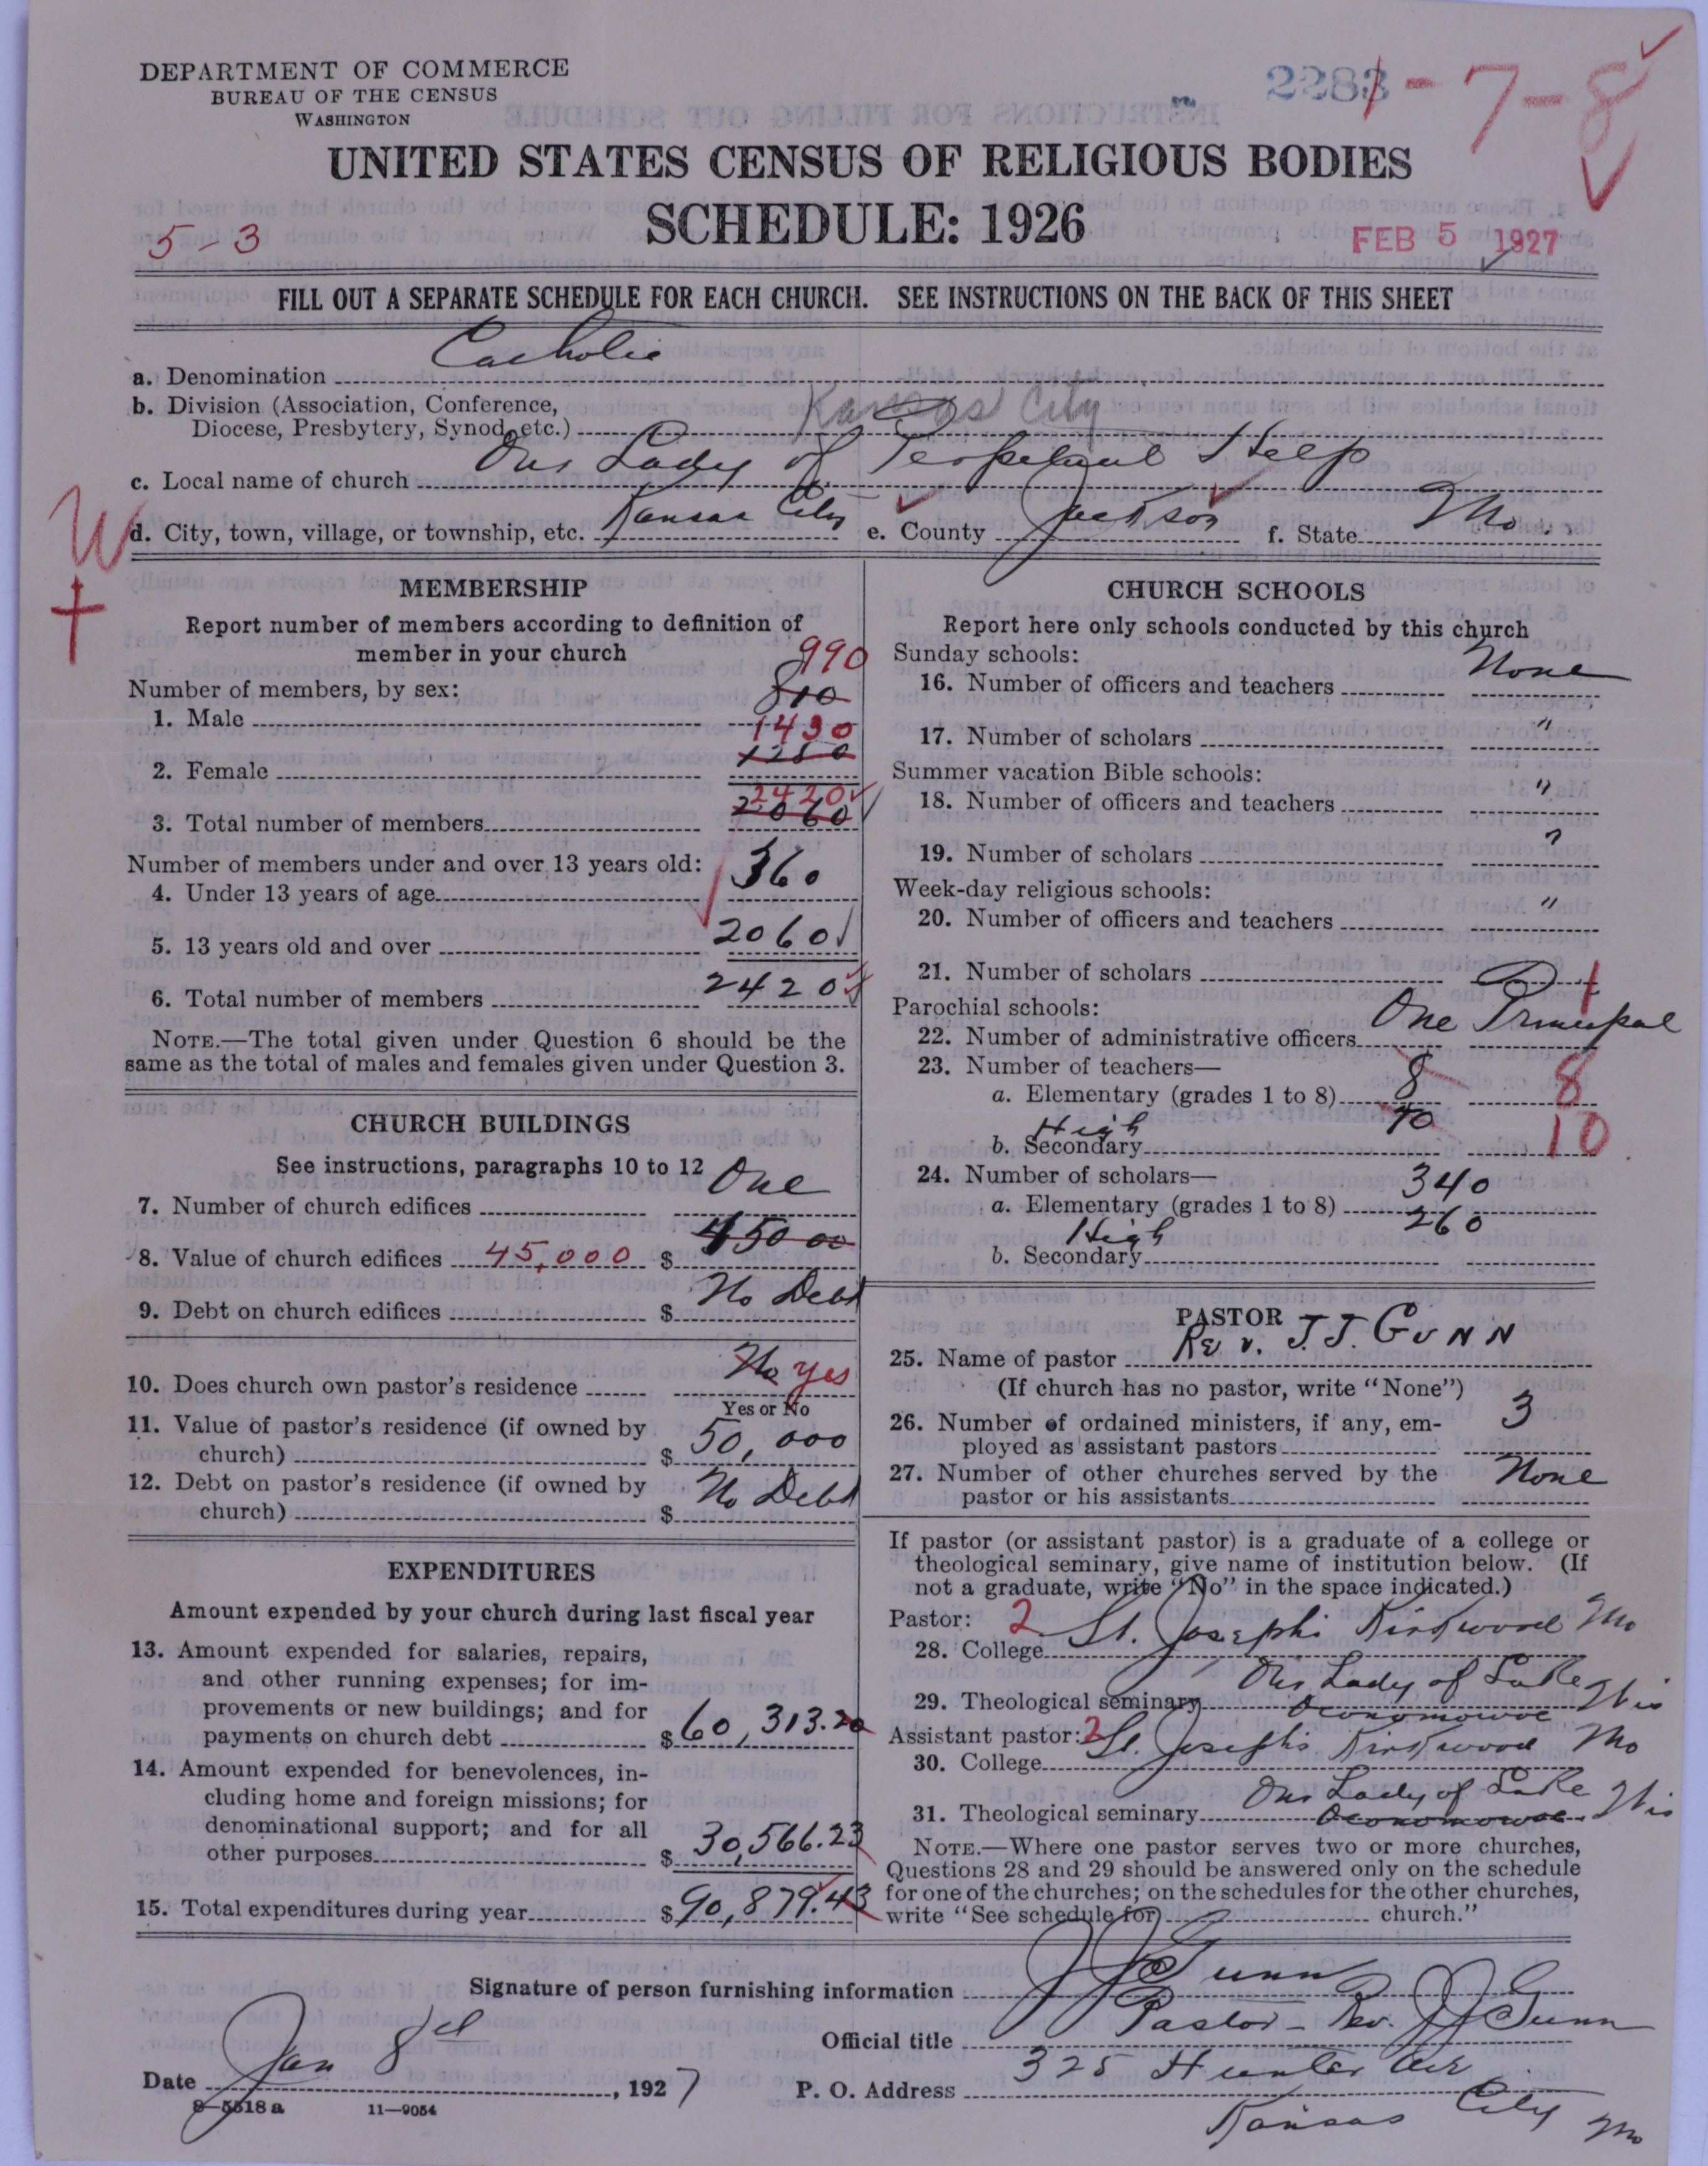 DEPARTMENT OF COMMERCE
BUREAU OF THE CENSUS
WASHINGTON
2283 1-7-8
UNITED STATES CENSUS OF RELIGIOUS BODIES
SCHEDULE: 1926
5-3
FEB 5 1927
FILL OUT A SEPARATE SCHEDULE FOR EACH CHURCH. SEE INSTRUCTIONS ON THE BACK OF THIS SHEET
a. Denomination Catholic
b. Division (Association, Conference,
Diocese, Presbytery, Synod, etc.) Kansas City
c. Local name of church Our Lady of Perpetual Help
W
d. City, town, village, or township, etc. Kansas City e. County Jackson f. State Mo
MEMBERSHIP
Report number of members according to definition of
member in your church
Number of members, by sex:
990
1. Male 810
1430
2. Female 1250
2420
3. Total number of members 2060
Number of members under and over 13 years old:
4. Under 13 years of age 360
5. 13 years old and over 2060
6. Total number of members 2420
NOTE.—The total given under Question 6 should be the
same as the total of males and females given under Question 3.
CHURCH BUILDINGS
See instructions, paragraphs 10 to 12
7. Number of church edifices One
8. Value of church edifices 45,000 $ 45000
9. Debt on church edifices $ No Debt
10. Does church own pastor's residence No yes
Yes or No
11. Value of pastor's residence (if owned by
church) $ 50,000
12. Debt on pastor's residence (if owned by
church) $ No Debt
EXPENDITURES
Amount expended by your church during last fiscal year
13. Amount expended for salaries, repairs,
and other running expenses; for im-
provements or new buildings; and for
payments on church debt $ 60,313.20
14. Amount expended for benevolences, in-
cluding home and foreign missions; for
denominational support; and for all
other purposes $ 30,566.23
15. Total expenditures during year $ 90,879.43
CHURCH SCHOOLS
Report here only schools conducted by this church
Sunday schools:
16. Number of officers and teachers None
17. Number of scholars "
Summer vacation Bible schools:
18. Number of officers and teachers "
19. Number of scholars "
Week-day religious schools:
20. Number of officers and teachers "
21. Number of scholars
Parochial schools: 1
22. Number of administrative officers One Principal
23. Number of teachers—
a. Elementary (grades 1 to 8) 8 8
High
b. Secondary 10 10
24. Number of scholars—
a. Elementary (grades 1 to 8) 340
High
b. Secondary 260
PASTOR
25. Name of pastor Rev. J.J. GUNN
(If church has no pastor, write "None")
26. Number of ordained ministers, if any, em-
ployed as assistant pastors 3
27. Number of other churches served by the
pastor or his assistants None
If pastor (or assistant pastor) is a graduate of a college or
theological seminary, give name of institution below. (If
not a graduate, write "No" in the space indicated.)
Pastor: 2
28. College St. Josephs Kirkwood Mo
29. Theological seminary Our Lady of Lake
Oconomowoc Wis
Assistant pastor: 2
30. College St. Josephs Kirkwood Mo
31. Theological seminary Our Lady of Lake
Oconomowoc Wis
NOTE.—Where one pastor serves two or more churches,
Questions 28 and 29 should be answered only on the schedule
for one of the churches; on the schedules for the other churches,
write "See schedule for church."
Signature of person furnishing information J J Gunn
Official title Pastor - Rev. J J Gunn
Date Jan 8, 1927
P. O. Address 325 Hunter Ave
Kansas City Mo
8—5518 a 11—9054